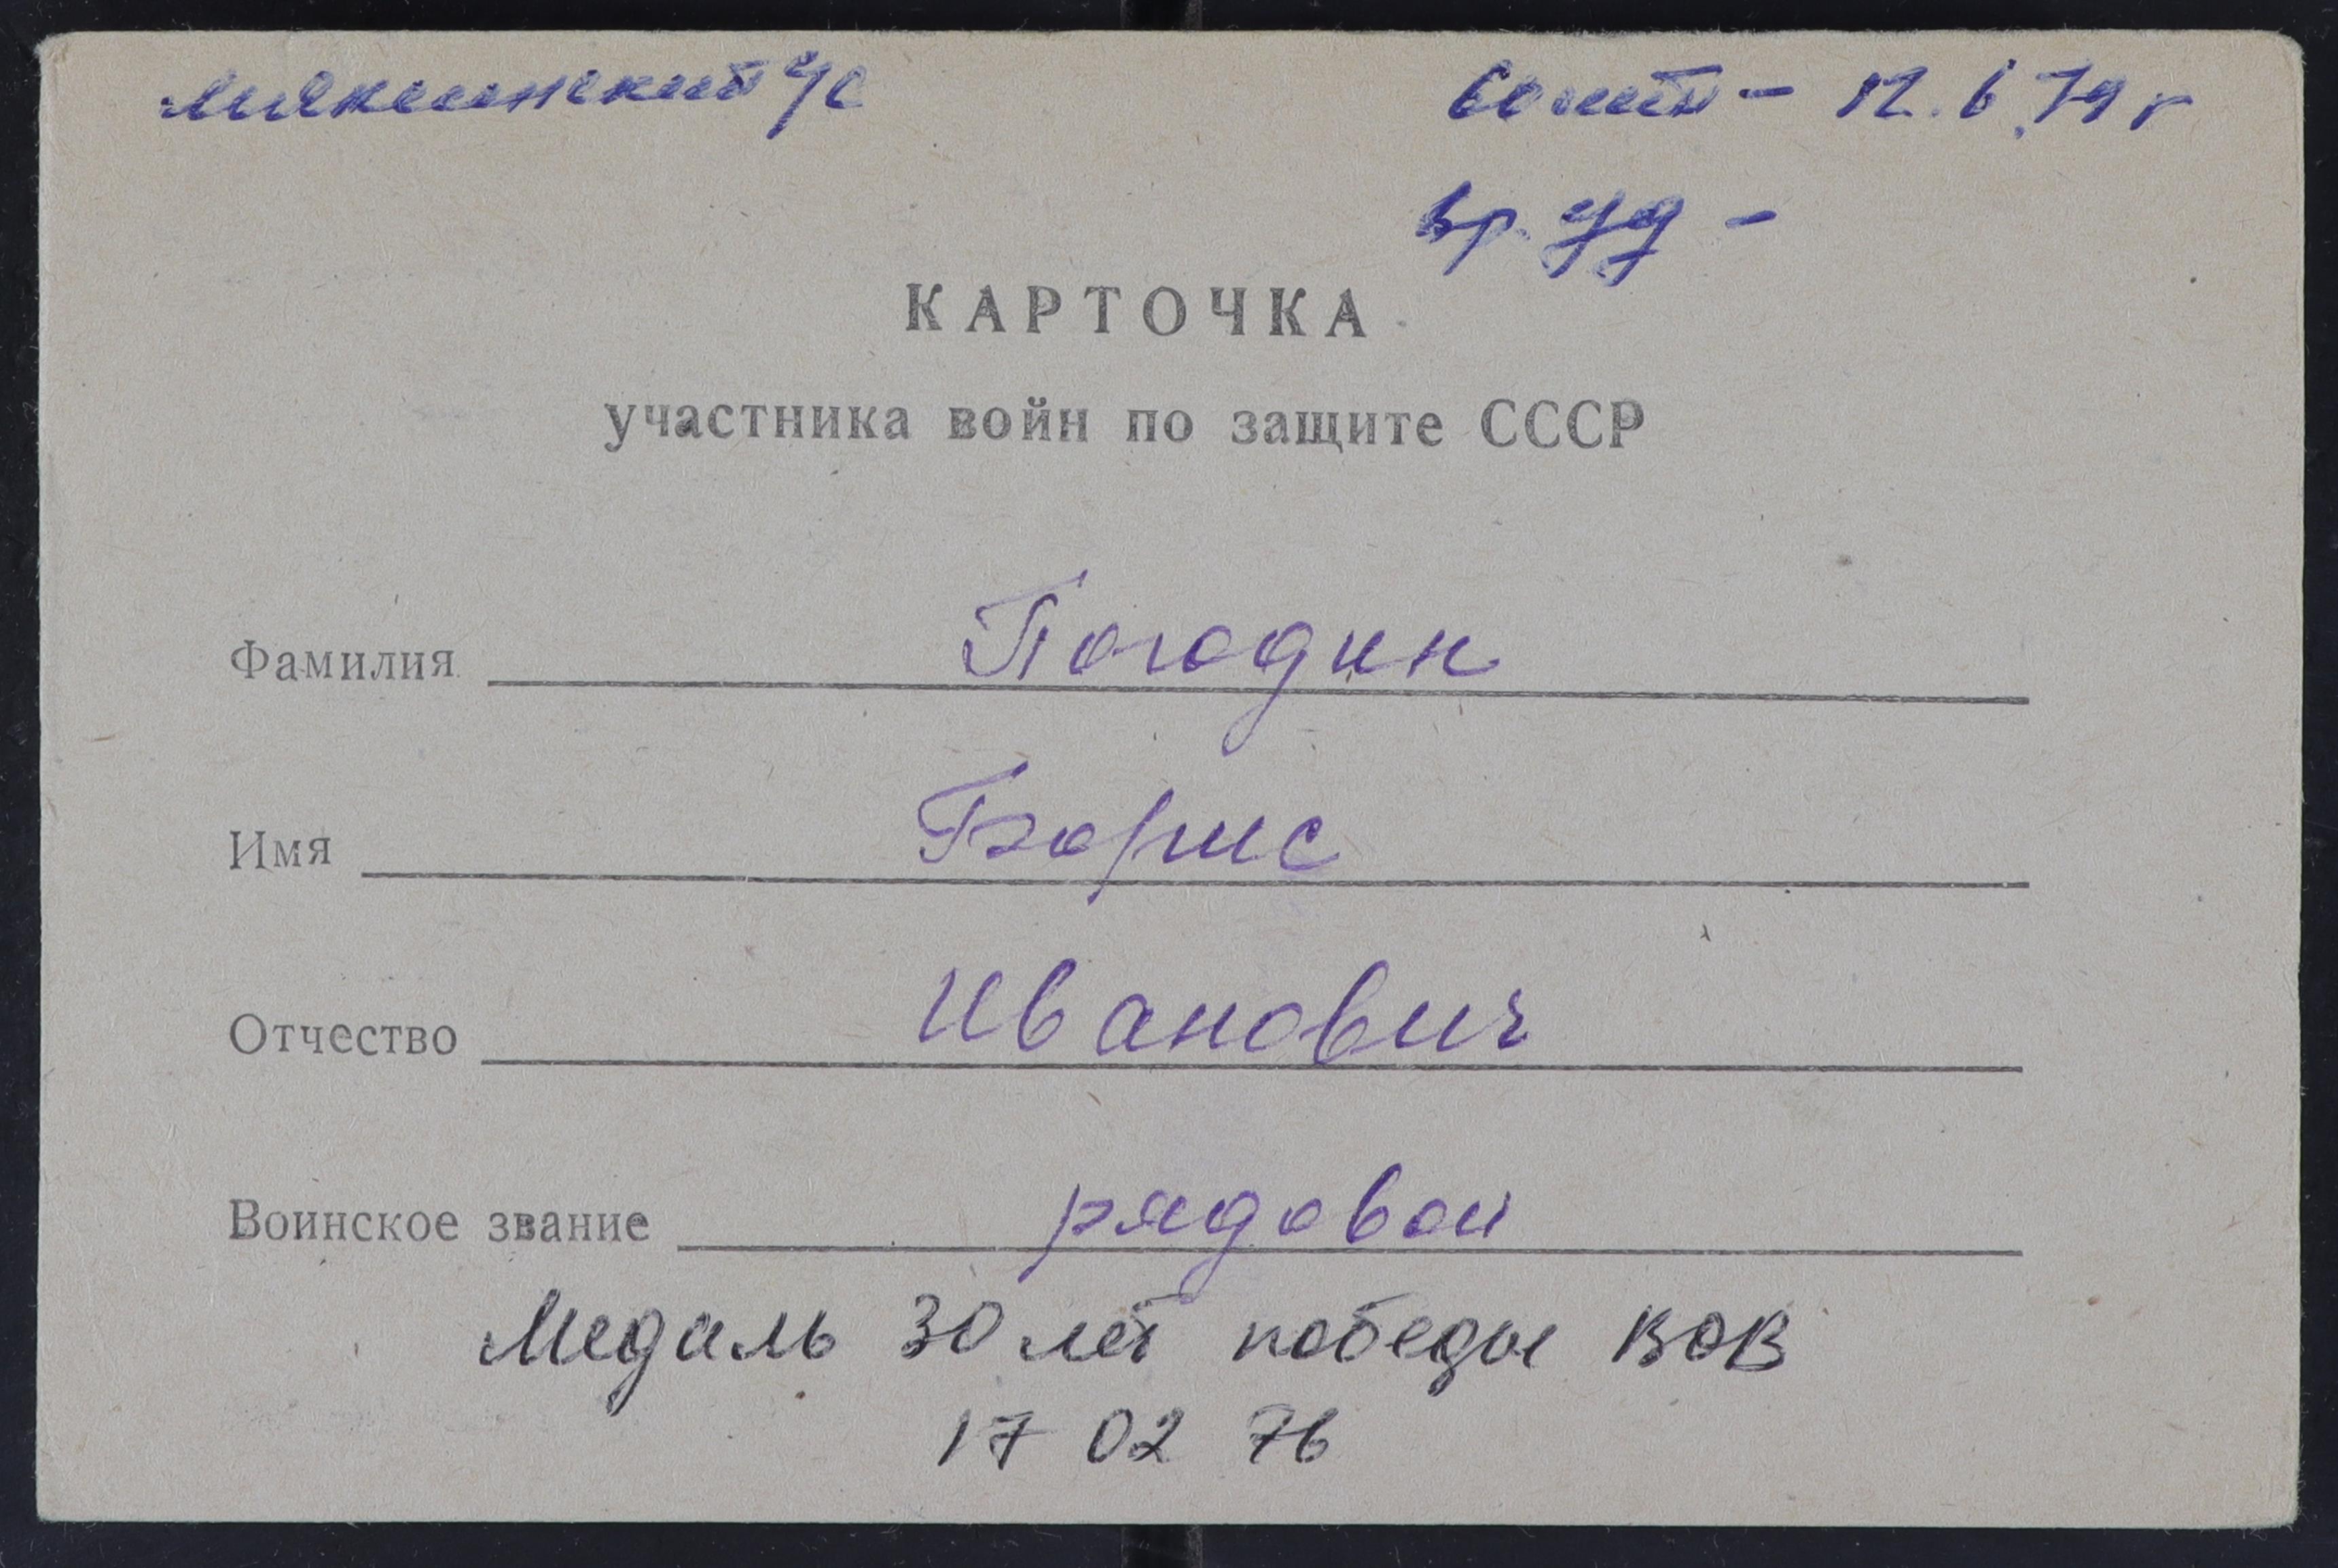 Мякишнский ч/с
60 лет - 12.6.79 г
вр. уд -
КАРТОЧКА
участника войн по защите СССР
Фамилия Погодин
Имя Борис
Отчество Иванович
Воинское звание рядовой
Медаль 30 лет победы ВОВ
17 02 76